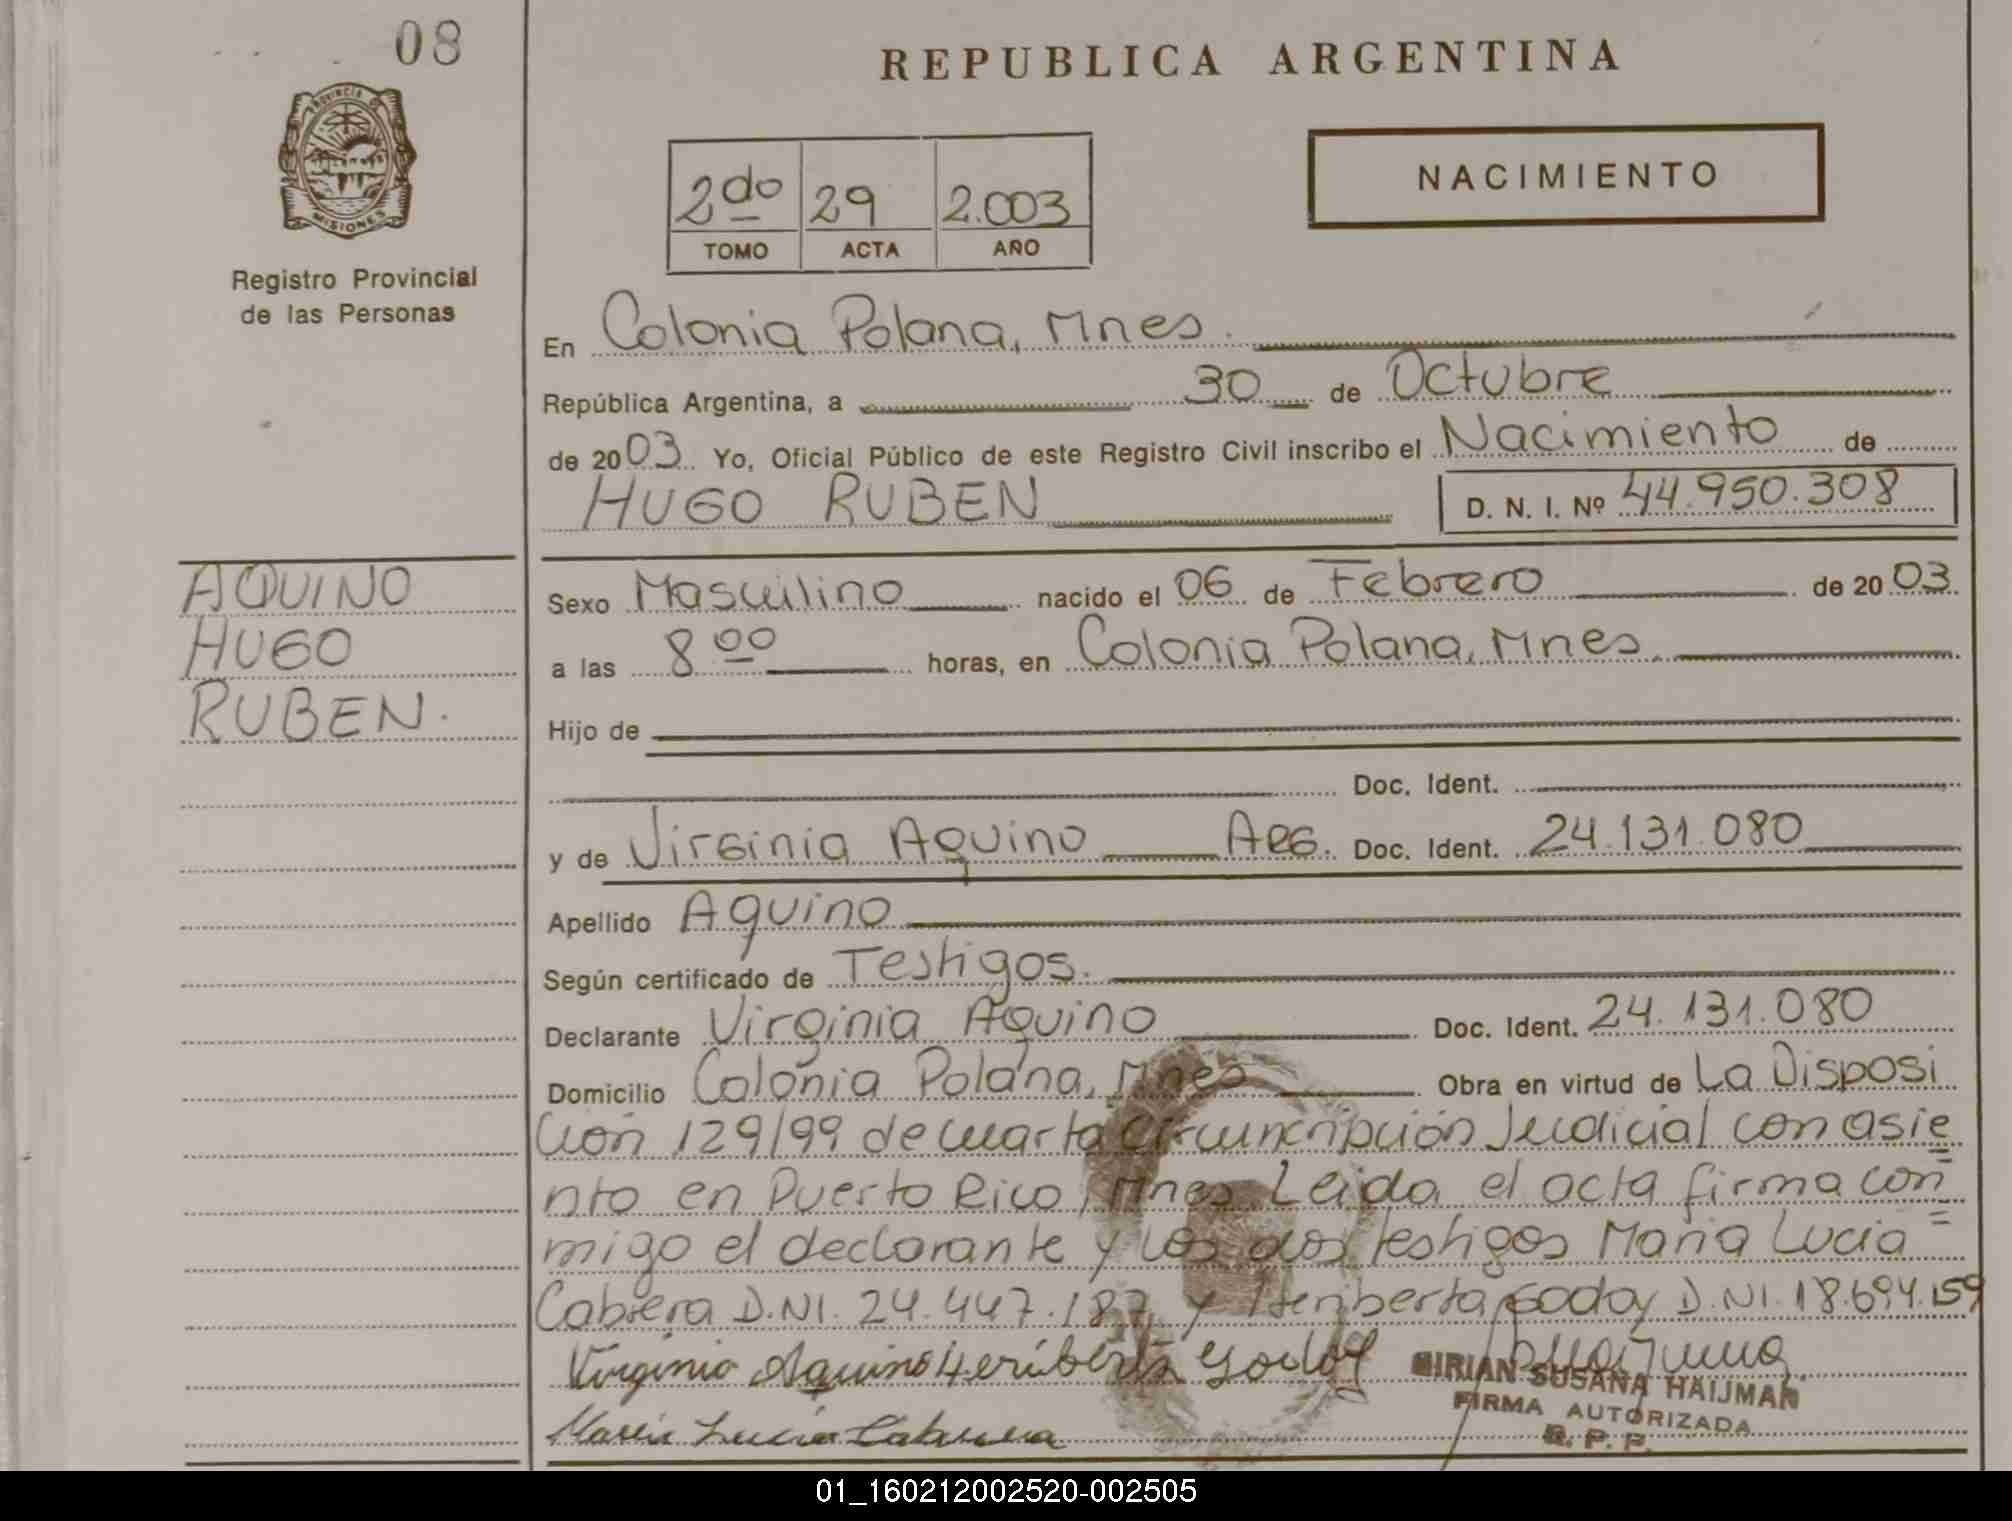 08
REPUBLICA ARGENTINA
PROVINCIA DE
MISIONES
Registro Provincial
de las Personas
2do 29 2.003
TOMO ACTA AÑO
NACIMIENTO
En Colonia Polana, Mnes.
República Argentina, a 30 de Octubre
de 2003. Yo, Oficial Público de este Registro Civil inscribo el Nacimiento de
HUGO RUBEN D. N. I. Nº 44.950.308
AQUINO
HUGO
RUBEN.
Sexo Masculino nacido el 06 de Febrero de 2003
a las 8 00 horas, en Colonia Polana, Mnes.
Hijo de
Doc. Ident.
y de Virginia Aquino ARG. Doc. Ident. 24.131.080
Apellido Aquino
Según certificado de Testigos.
Declarante Virginia Aquino Doc. Ident. 24.131.080
Domicilio Colonia Polana, Mnes Obra en virtud de La Disposi
ción 129/99 de cuarta circuncripción Judicial con asie=
nto en Puerto Rico, Mnes Leida el acta firma con=
migo el declarante y los dos testigos Maria Lucia
Cabrera D.NI. 24.447.187 y Heriberta Godoy D.NI. 18.694.159
Virginia Aquino Heriberta Godoy
MIRIAN SUSANA HAIJMAN
FIRMA AUTORIZADA
R. P. P.
Maria Lucia Cabrera
01_160212002520-002505